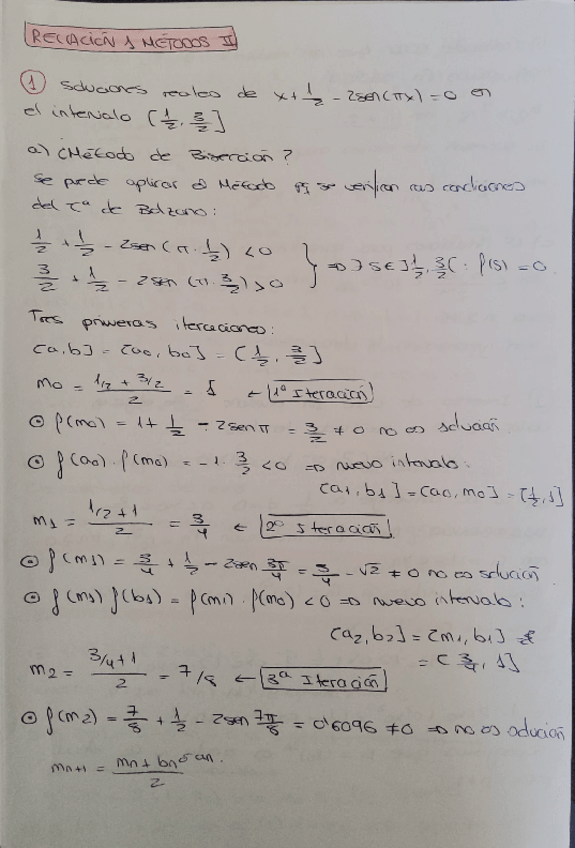 RELACIÓN 1 MÉTODOS II
① Soluciones reales de x + 1/2 - 2sen(πx) = 0 en
el intervalo [1/2, 3/2]
a) ¿Método de Bisección?
Se puede aplicar el Método pq se verifican las condiciones
del Tª de Bolzano:
1/2 + 1/2 - 2sen(π · 1/2) < 0
3/2 + 1/2 - 2sen(π · 3/2) > 0 } ⇒ ∃ s ∈ ]1/2, 3/2[ : f(s) = 0.
Tres primeras iteraciones:
[a, b] = [a0, b0] = [1/2, 3/2]
m0 = (1/2 + 3/2)/2 = 1 ← 1ª Iteración
⊙ f(m0) = 1 + 1/2 - 2senπ = 3/2 ≠ 0 no es solución
⊙ f(a0) · f(m0) = -1 · 3/2 < 0 ⇒ nuevo intervalo:
[a1, b1] = [a0, m0] = [1/2, 1]
m1 = (1/2 + 1)/2 = 3/4 ← 2ª Iteración
⊙ f(m1) = 3/4 + 1/2 - 2sen 3π/4 = 3/4 - √2 ≠ 0 no es solución
⊙ f(m1) f(b1) = f(m1) · f(m0) < 0 ⇒ nuevo intervalo:
[a2, b2] = [m1, b1]
= [3/4, 1]
m2 = (3/4 + 1)/2 = 7/8 ← 3ª Iteración
⊙ f(m2) = 7/8 + 1/2 - 2sen 7π/8 = 0'6096 ≠ 0 ⇒ no es solución
mn+1 = (mn + bn ó an)/2